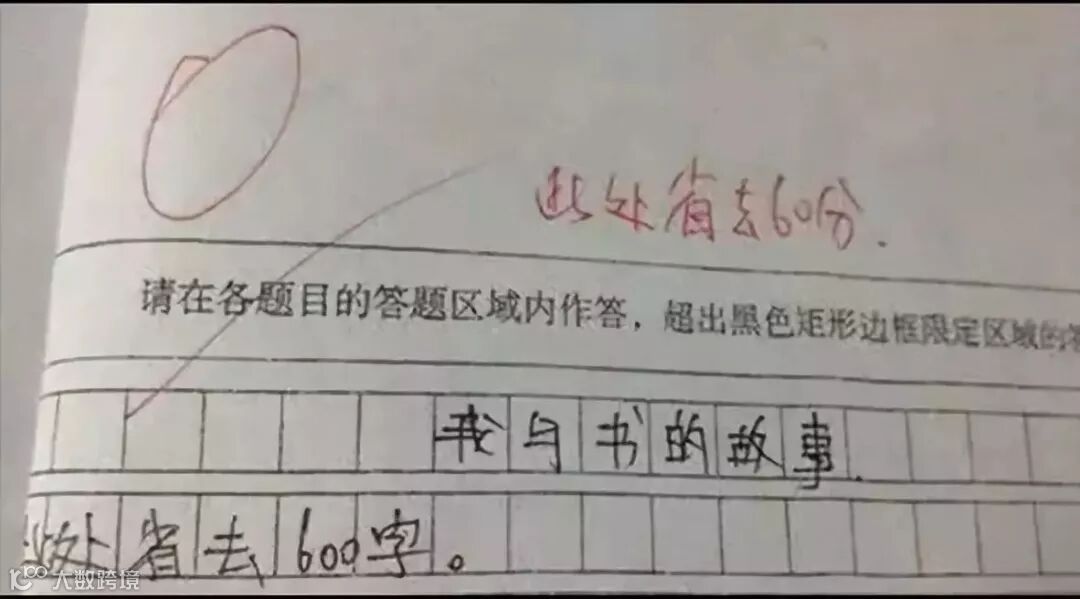 此处省去60分.
请在各题目的答题区域内作答，超出黑色矩形边框限定区域的
我与书的故事.
此处省去600字。
大数跨境